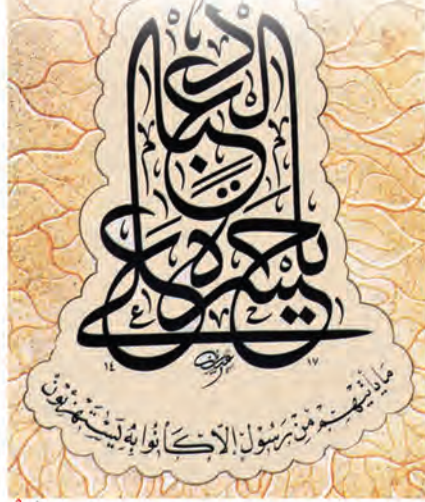 يَا حَسْرَةً عَلَى الْعِبَادِ
١٤ ١٧
مَا يَأْتِيهِمْ مِنْ رَسُولٍ إِلَّا كَانُوا بِهِ يَسْتَهْزِئُونَ